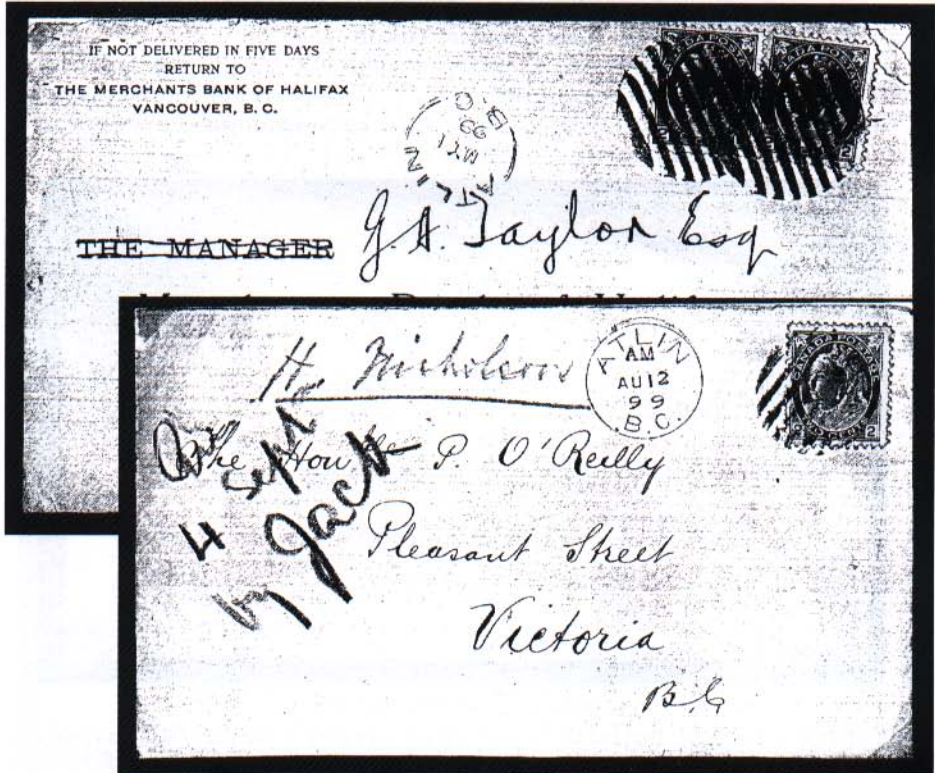 IF NOT DELIVERED IN FIVE DAYS
RETURN TO
THE MERCHANTS BANK OF HALIFAX
VANCOUVER, B. C.
ATLIN
99
B.C.
THE MANAGER
G. A. Taylor Esq
H. Nicholson
ATLIN
AM
AU 12
99
B.C.
The Honble P. O'Reilly
Pleasant Street
Victoria
B.C.
4 Sept
by Jack